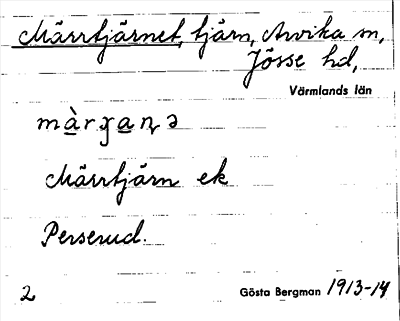 Märrtjärnet, tjärn, Arvika sn,
Jösse hd,
Värmlands län
Märrtjärn ek
Perserud.
2 Gösta Bergman 1913-14